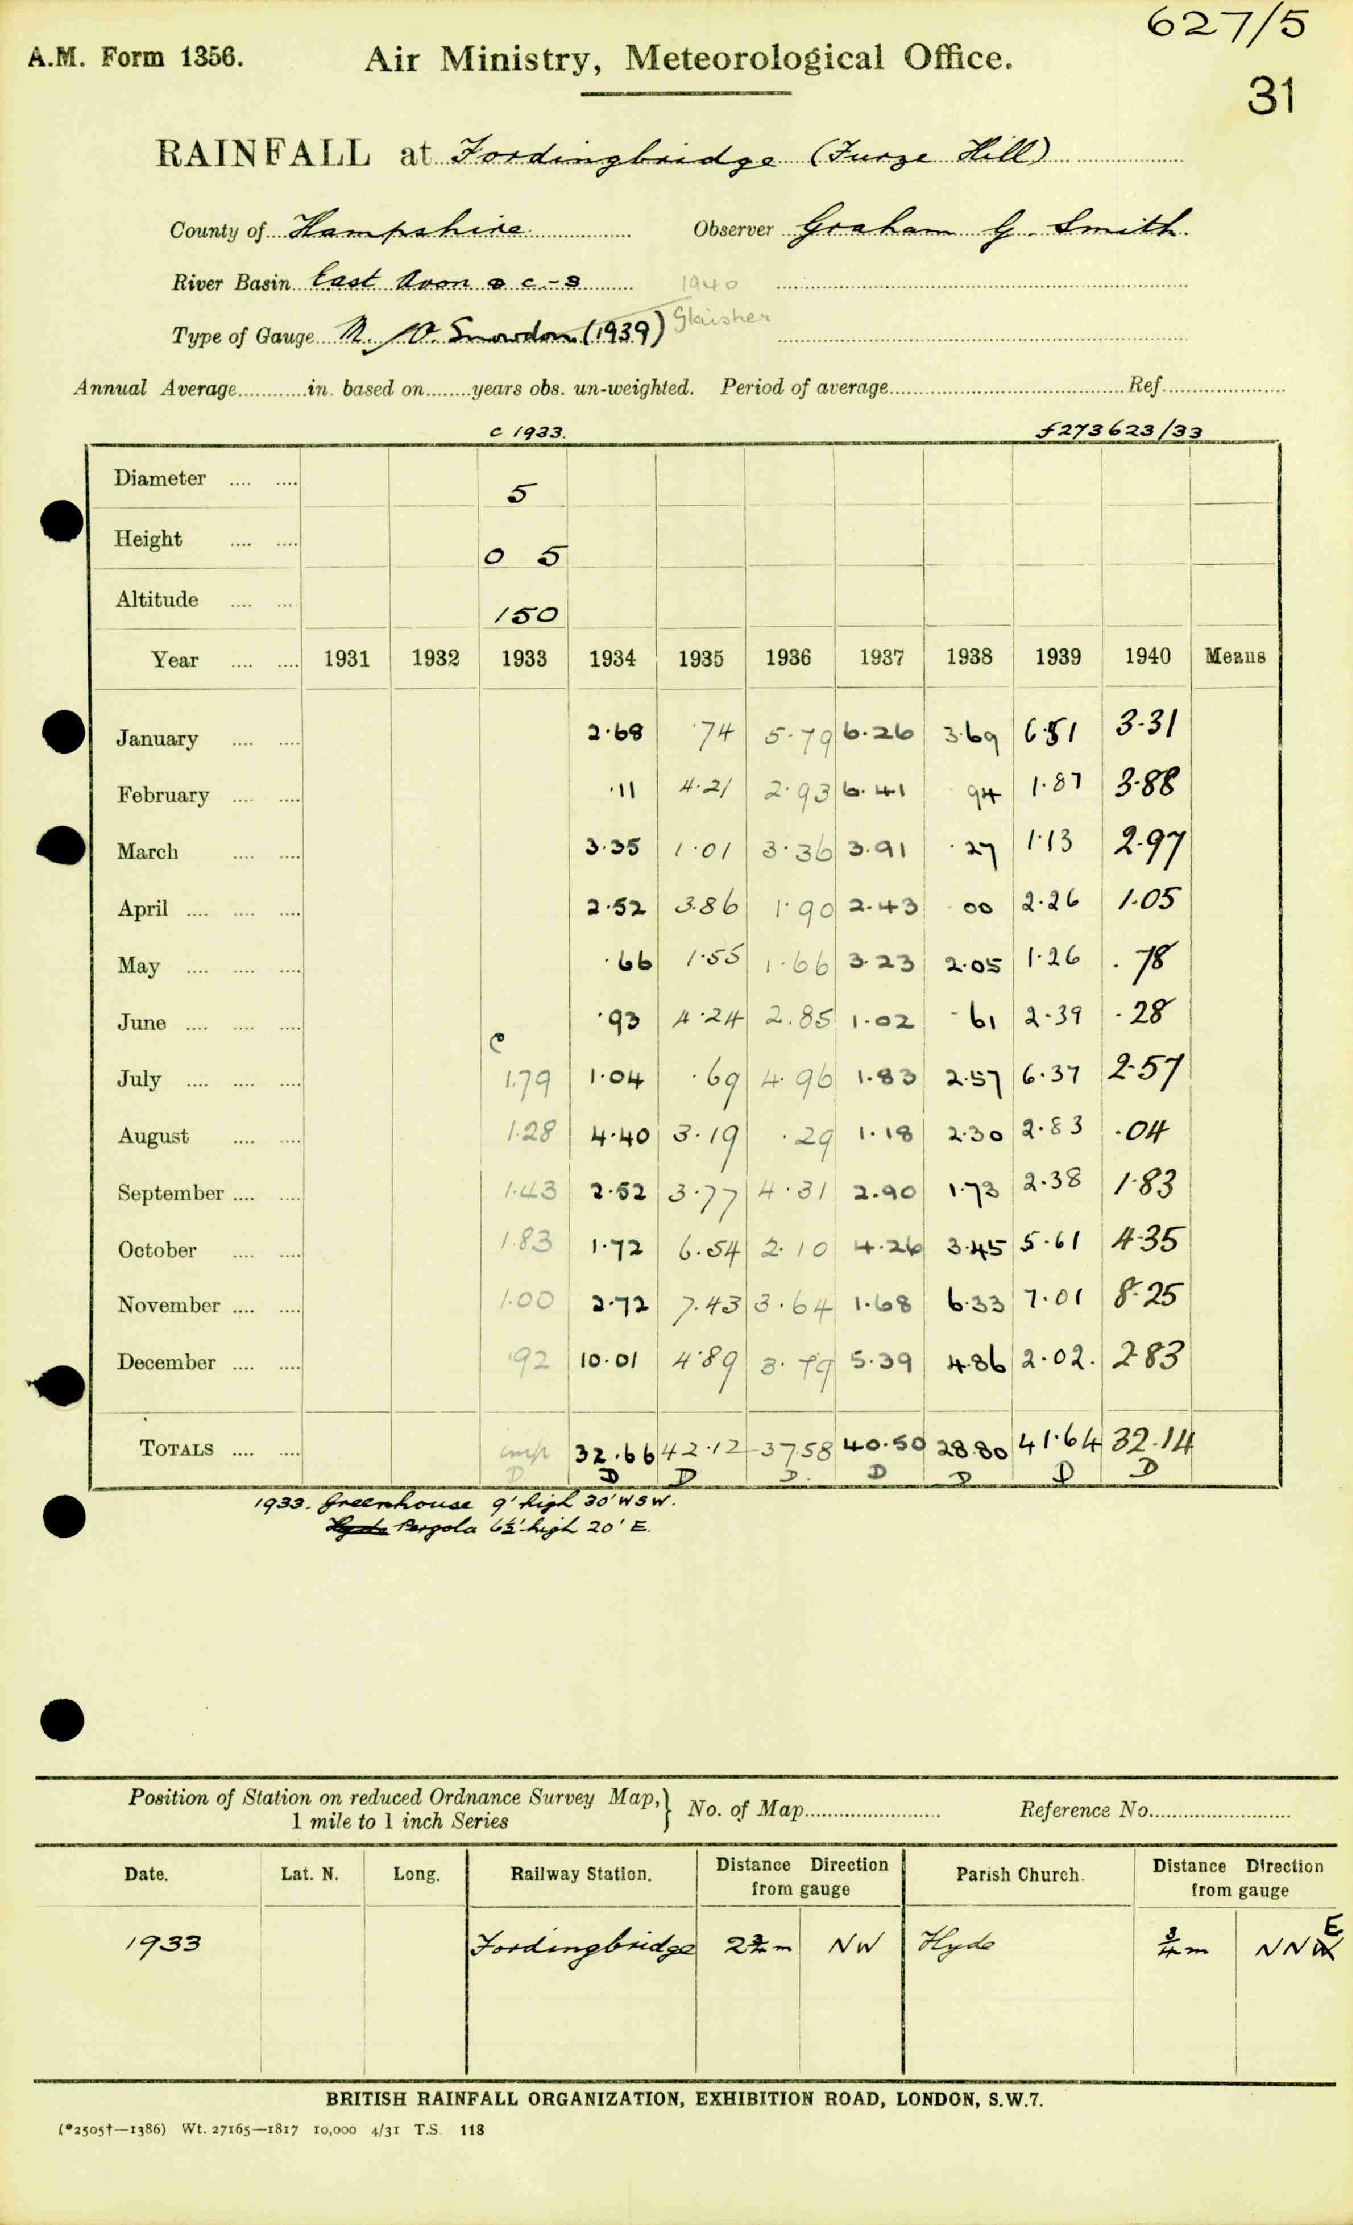 627/5
A.M. Form 1356. Air Ministry, Meteorological Office.
31
RAINFALL at Fordingbridge (Furze Hill)
County of Hampshire Observer Graham G. Smith.
River Basin East Avon c-s 1940
Type of Gauge M. O. Snowdon (1939) Glaisher
Annual Average............in. based on........years obs. un-weighted. Period of average........................................Ref.....................
c 1933. f273623/33
Diameter .... .... 5
Height .... .... 0 5
Altitude .... .... 150
Year .... .... 1931 1932 1933 1934 1935 1936 1937 1938 1939 1940 Means
January .... .... 2.68 .74 5.79 6.26 3.69 6.51 3.31
February .... .... .11 4.21 2.93 6.41 94 1.87 3.88
March .... .... 3.35 1.01 3.36 3.91 .27 1.13 2.97
April .... .... .... 2.52 3.86 1.90 2.43 .00 2.26 1.05
May .... .... .... .66 1.55 1.66 3.23 2.05 1.26 .78
June .... .... .... .93 4.24 2.85 1.02 .61 2.39 .28
c
July .... .... .... 1.79 1.04 .69 4.96 1.83 2.57 6.37 2.57
August .... .... 1.28 4.40 3.19 .29 1.18 2.30 2.83 .04
September .... .... 1.43 2.52 3.77 4.31 2.90 1.73 2.38 1.83
October .... .... 1.83 1.72 6.54 2.10 4.26 3.45 5.61 4.35
November .... .... 1.00 2.72 7.43 3.64 1.68 6.33 7.01 8.25
December .... .... .92 10.01 4.89 3.79 5.39 4.86 2.02. 2.83
TOTALS .... .... imp 32.66 42.12 37.58 40.50 28.80 41.64 32.14
D D D D. D D D D
1933. Greenhouse 9' high 30' WSW.
Hyde Pergola 6½' high 20' E.
Position of Station on reduced Ordnance Survey Map,} No. of Map........................ Reference No.........................
1 mile to 1 inch Series
Date. Lat. N. Long. Railway Station. Distance Direction from gauge Parish Church. Distance Direction from gauge
1933 Fordingbridge 2¾ m NW Hyde ¾ m NNW E
BRITISH RAINFALL ORGANIZATION, EXHIBITION ROAD, LONDON, S.W.7.
(*2505†—1386) Wt. 27165—1817 10,000 4/31 T.S. 118